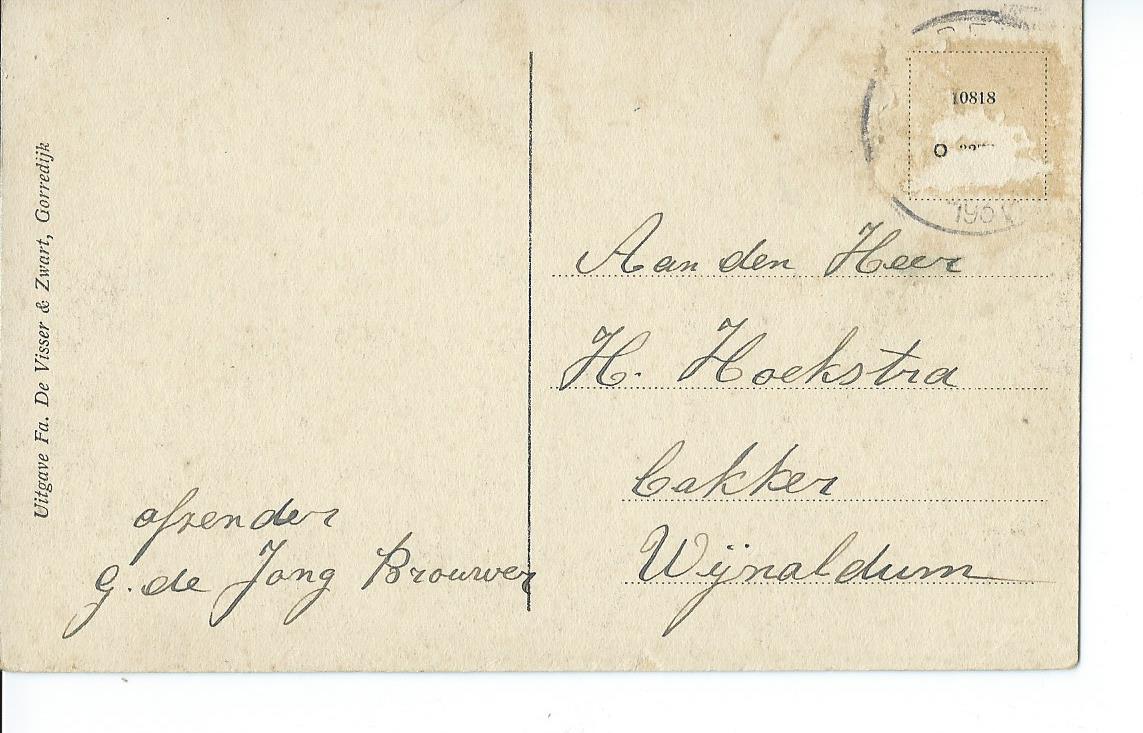 Uitgave Fa. De Visser & Zwart, Gorredijk
10818
Aan den Heer
H. Hoekstra
bakker
Wijnaldum
afzender
G. de Jong Brouwer